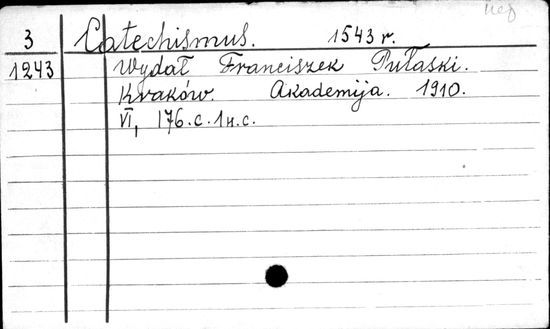 3 Catechismus. 1543 r.
1243 Wydał Franciszek Pułaski.
Kraków. Akademija. 1910.
VI, 176.c.1н.с.